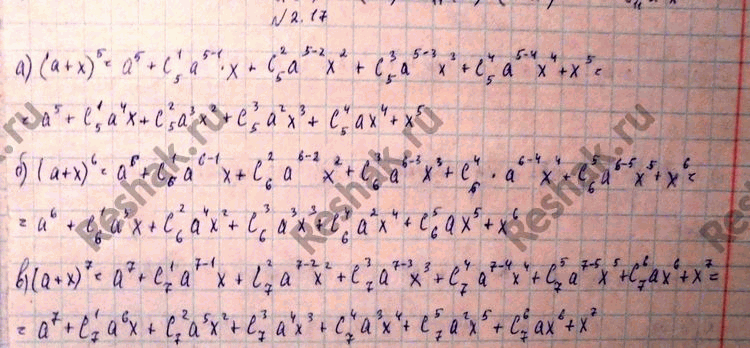 №2.17
а) (a+x)^5 = a^5 + C_5^1 a^{5-1} · x + C_5^2 a^{5-2} x^2 + C_5^3 a^{5-3} x^3 + C_5^4 a^{5-4} x^4 + x^5 =
= a^5 + C_5^1 a^4 x + C_5^2 a^3 x^2 + C_5^3 a^2 x^3 + C_5^4 a x^4 + x^5
б) (a+x)^6 = a^6 + C_6^1 a^{6-1} x + C_6^2 a^{6-2} x^2 + C_6^3 a^{6-3} x^3 + C_6^4 · a^{6-4} x^4 + C_6^5 a^{6-5} x^5 + x^6 =
= a^6 + C_6^1 a^5 x + C_6^2 a^4 x^2 + C_6^3 a^3 x^3 + C_6^4 a^2 x^4 + C_6^5 a x^5 + x^6
в) (a+x)^7 = a^7 + C_7^1 a^{7-1} x + C_7^2 a^{7-2} x^2 + C_7^3 a^{7-3} x^3 + C_7^4 a^{7-4} x^4 + C_7^5 a^{7-5} x^5 + C_7^6 a x^6 + x^7 =
= a^7 + C_7^1 a^6 x + C_7^2 a^5 x^2 + C_7^3 a^4 x^3 + C_7^4 a^3 x^4 + C_7^5 a^2 x^5 + C_7^6 a x^6 + x^7
Reshak.ru
Reshak.ru
Reshak.ru